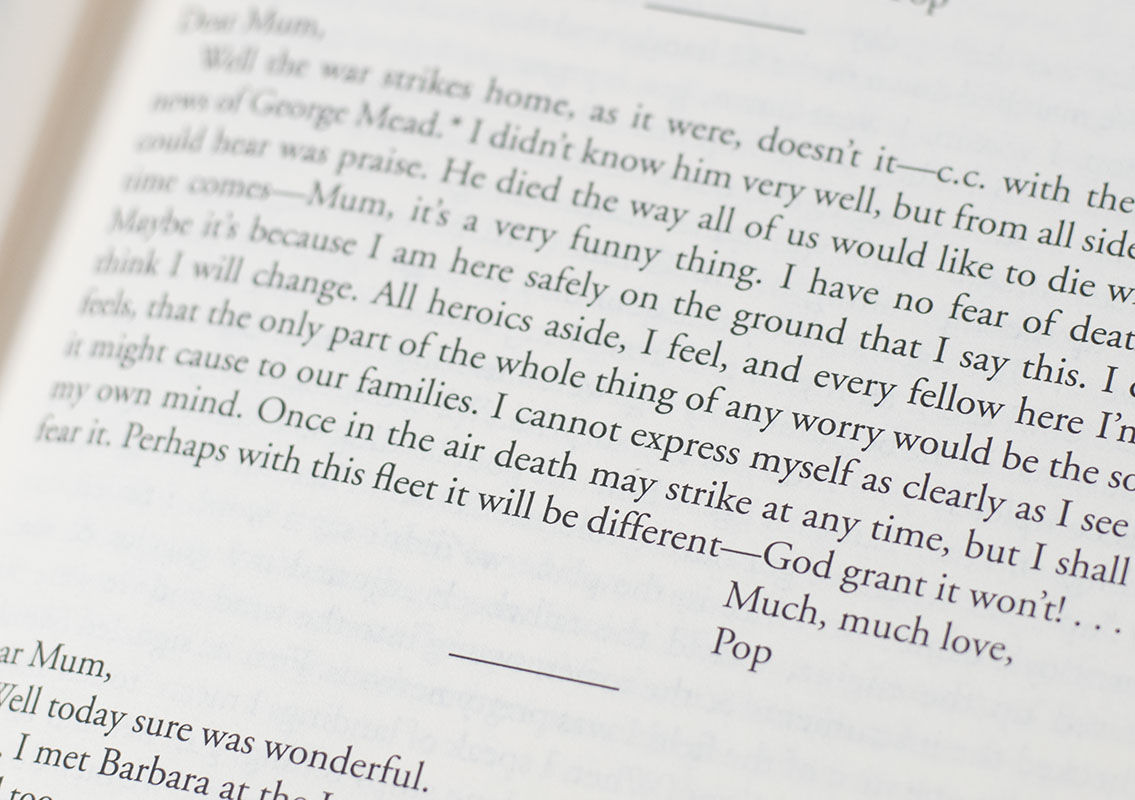 Pop
Dear Mum,
Well the war strikes home, as it were, doesn't it—c.c. with the
news of George Mead.* I didn't know him very well, but from all side
could hear was praise. He died the way all of us would like to die w
time comes—Mum, it's a very funny thing. I have no fear of deat
Maybe it's because I am here safely on the ground that I say this. I
think I will change. All heroics aside, I feel, and every fellow here I'm
feels, that the only part of the whole thing of any worry would be the so
it might cause to our families. I cannot express myself as clearly as I see
my own mind. Once in the air death may strike at any time, but I shall
fear it. Perhaps with this fleet it will be different—God grant it won't! . . .
Much, much love,
Pop
ar Mum,
Well today sure was wonderful.
I met Barbara at the
too